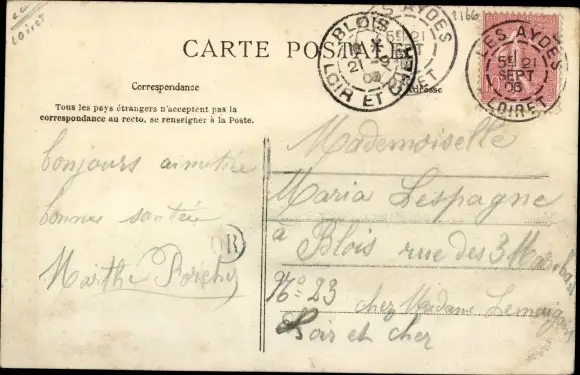 cc
Loiret
2166
CARTE POSTALE
BLOIS
21 -9
06
LOIR ET CHER
LES AYDES
5E 21
LOIRET
LES AYDES
5E 21
SEPT
06
LOIRET
Correspondance
Adresse
Tous les pays étrangers n'acceptent pas la
correspondance au recto, se renseigner à la Poste.
bonjours amitiée
bonnes santée
Marthe
OR
Mademoiselle
Maria Lespagne
à Blois rue des 3
No 23 chez Madame
Loir et cher